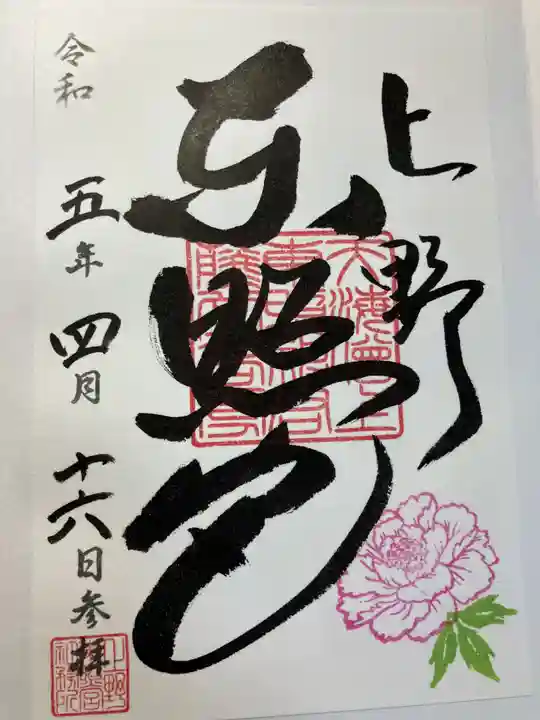 上野
東照宮
令和五年四月十六日参拝
上野東照宮社務所